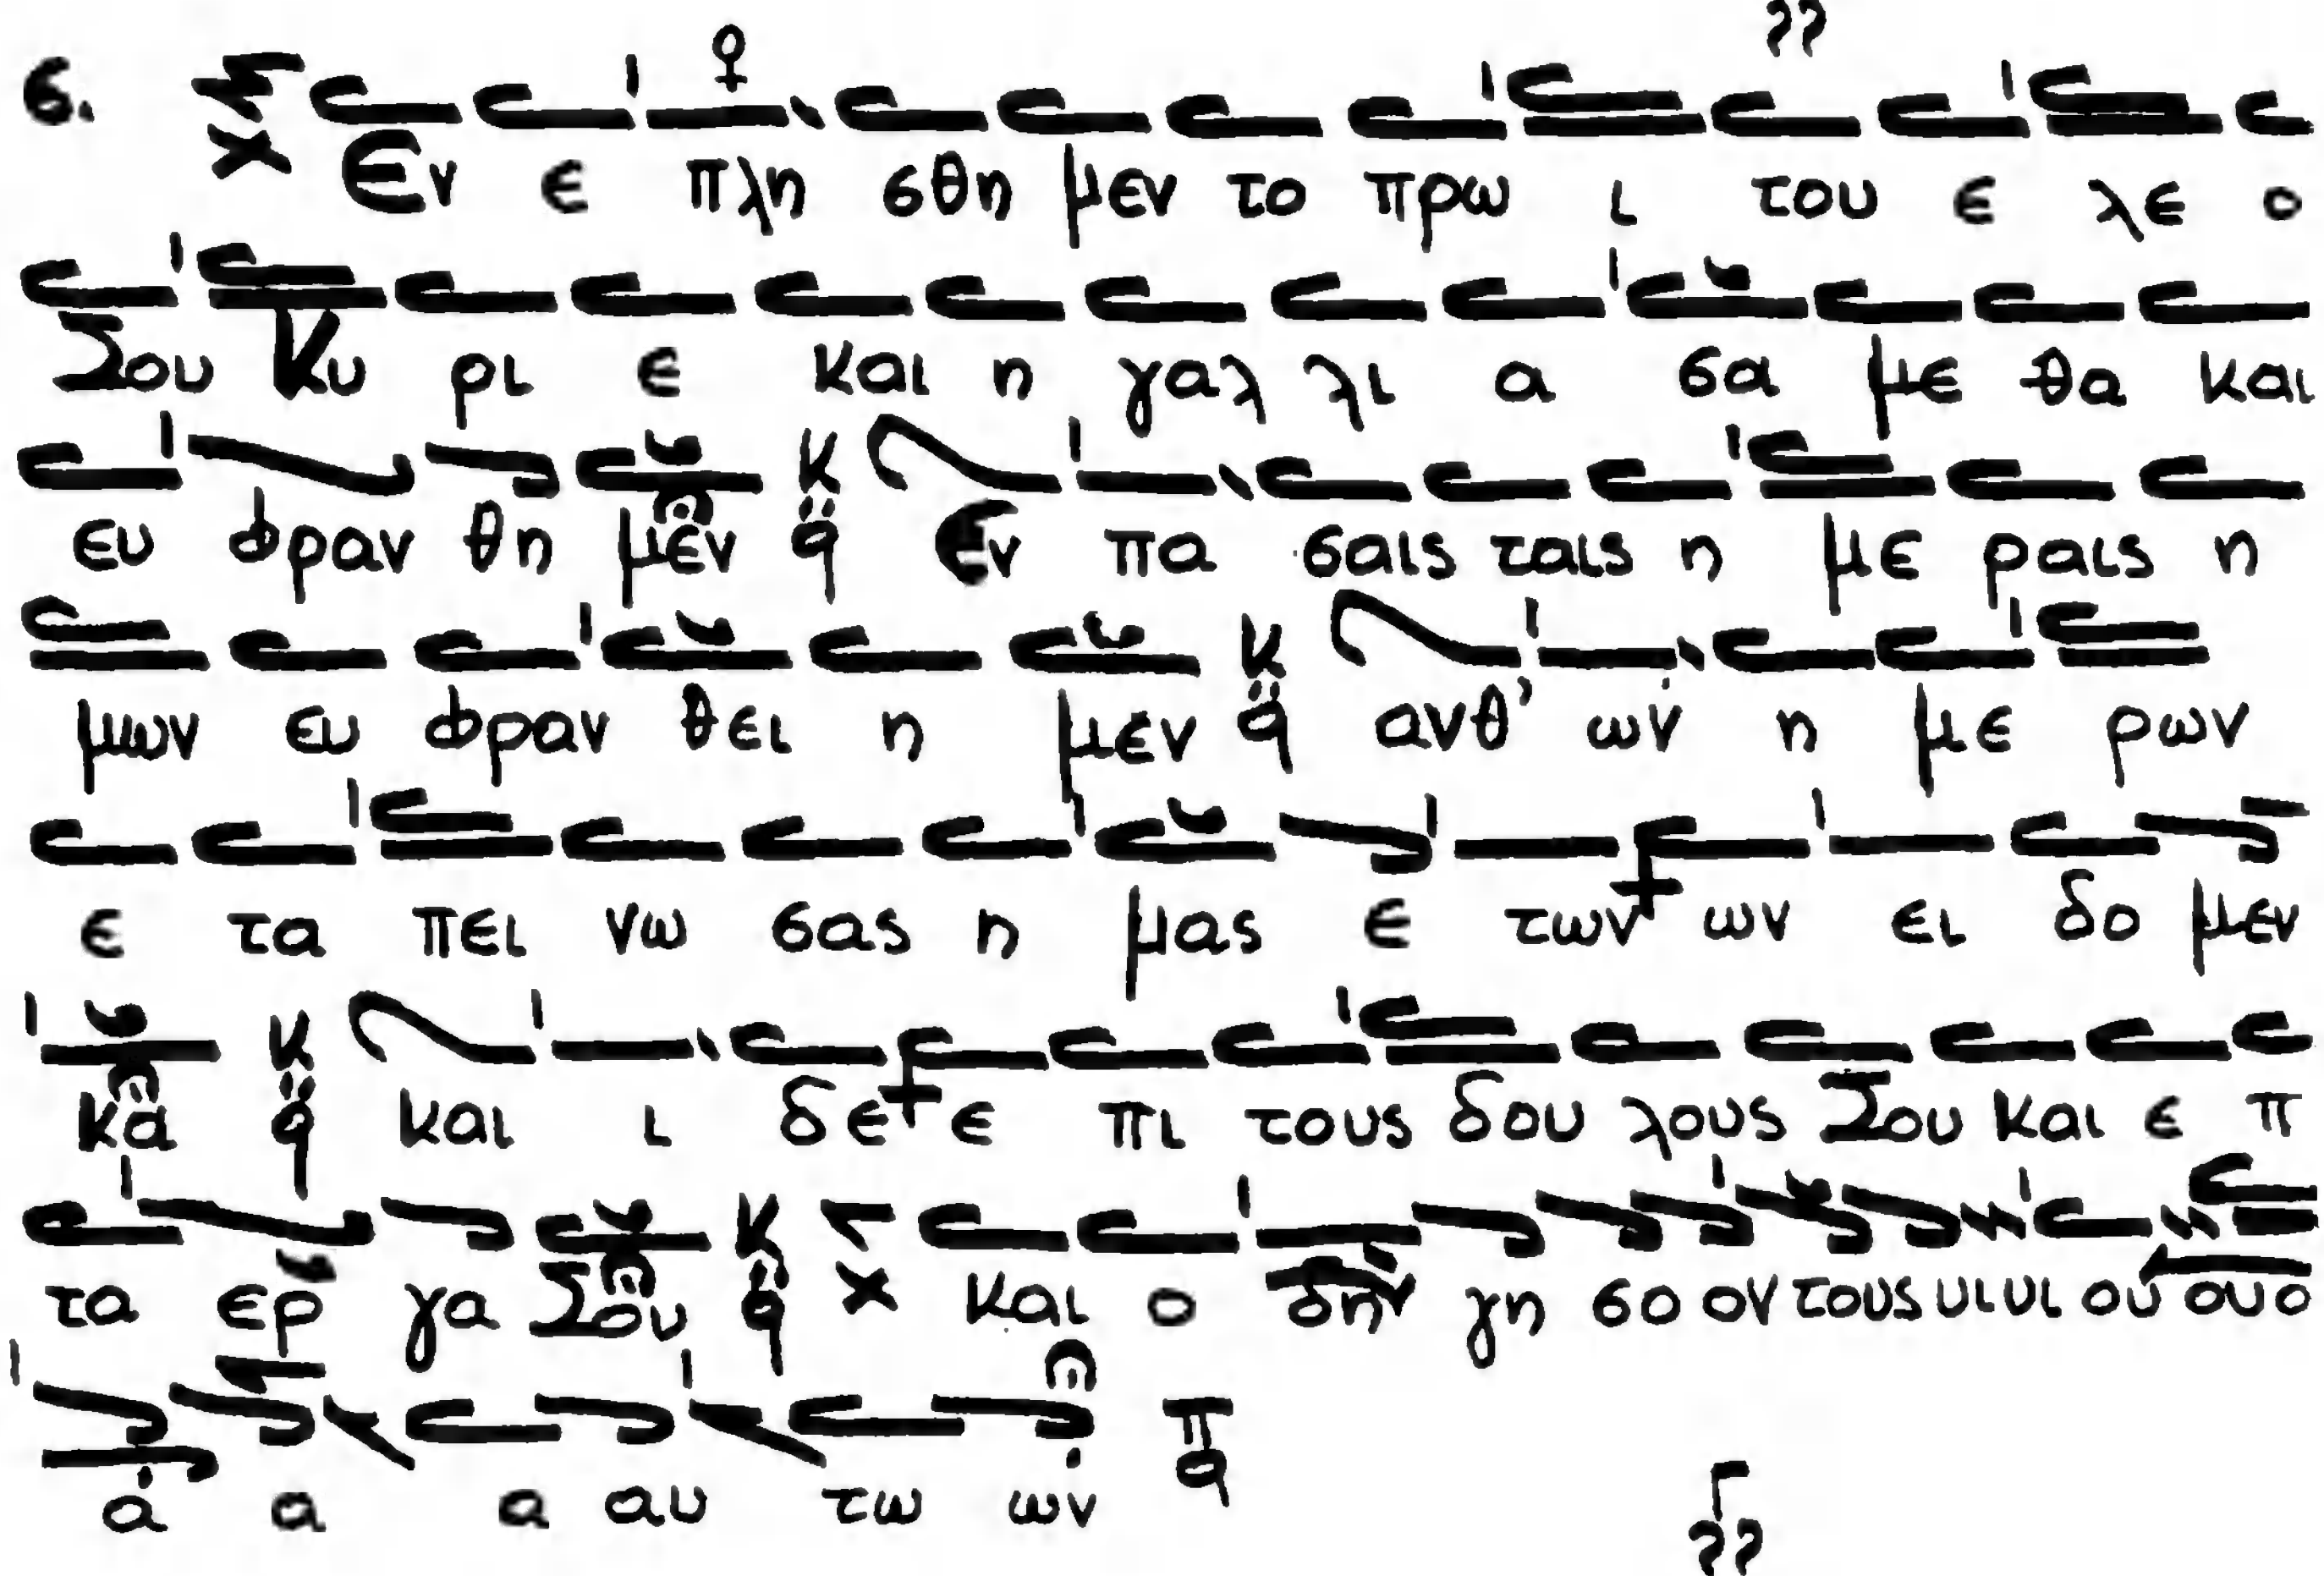 6. Εν ε πλη σθη μεν το πρω ι του ε λε ο
Σου Κυ ρι ε και η γαλ λι α σα με θα και
ευ φραν θη μεν Εν πα σαις ταις η με ραις η
μων ευ φραν θει η μεν ανθ' ων η με ρων
ε τα πει νω σας η μας ε των ων ει δο μεν
κα και ι δε ε πι τους δου λους Σου και ε π
τα ερ γα Σου και ο δη γη σο ον τους υι υι ου ου ο
α α α αυ τω ων